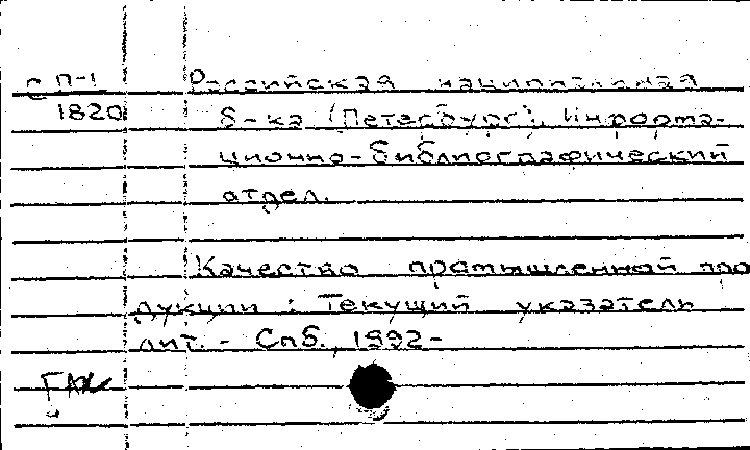 С П-1 Российская национальная
1820 б-ка (Петербург). Информа-
ционно-библиографический
отдел.
Качество промышленной про
дукции : Текущий указатель
лит. - Спб., 1992-